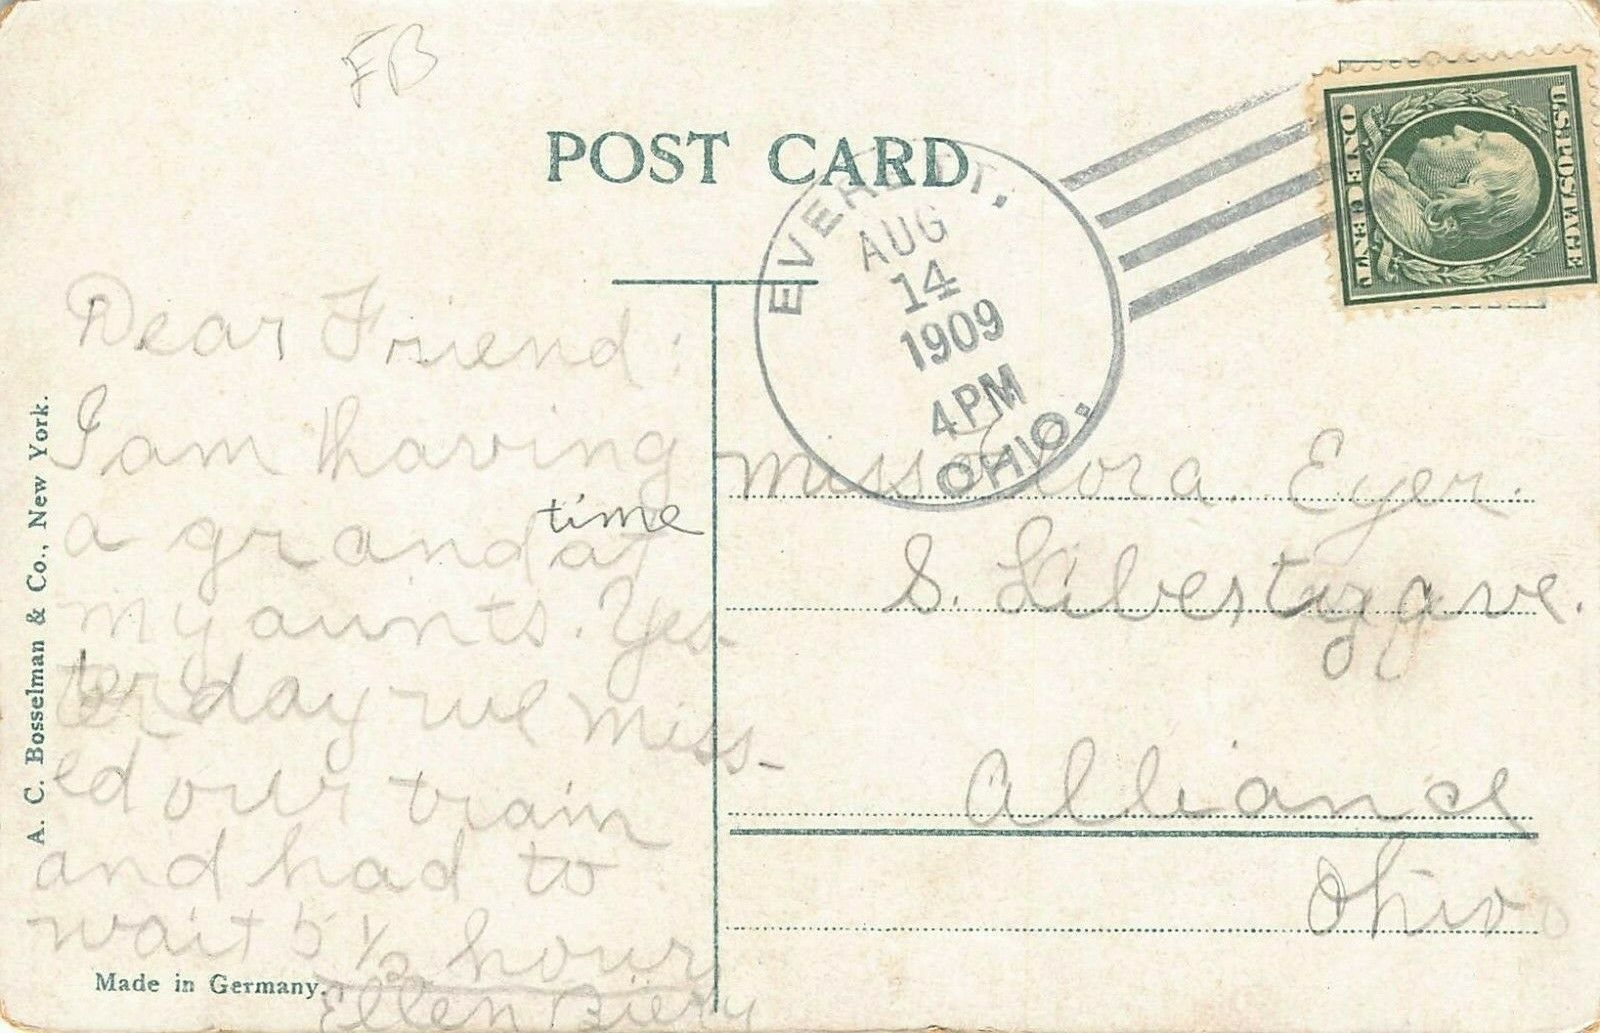 FB
POST CARD
U.S. POSTAGE
ONE CENT
EVERETT,
AUG
14
1909
4 PM
OHIO.
Dear Friend:
I am having
a grand time at
my aunts. Yes-
terday we miss-
ed our train
and had to
wait 5 1/2 hours
Ellen
Miss Flora. Eyer.
S. Liberty ave.
Alliance
Ohio
A. C. Bosselman & Co., New York.
Made in Germany.